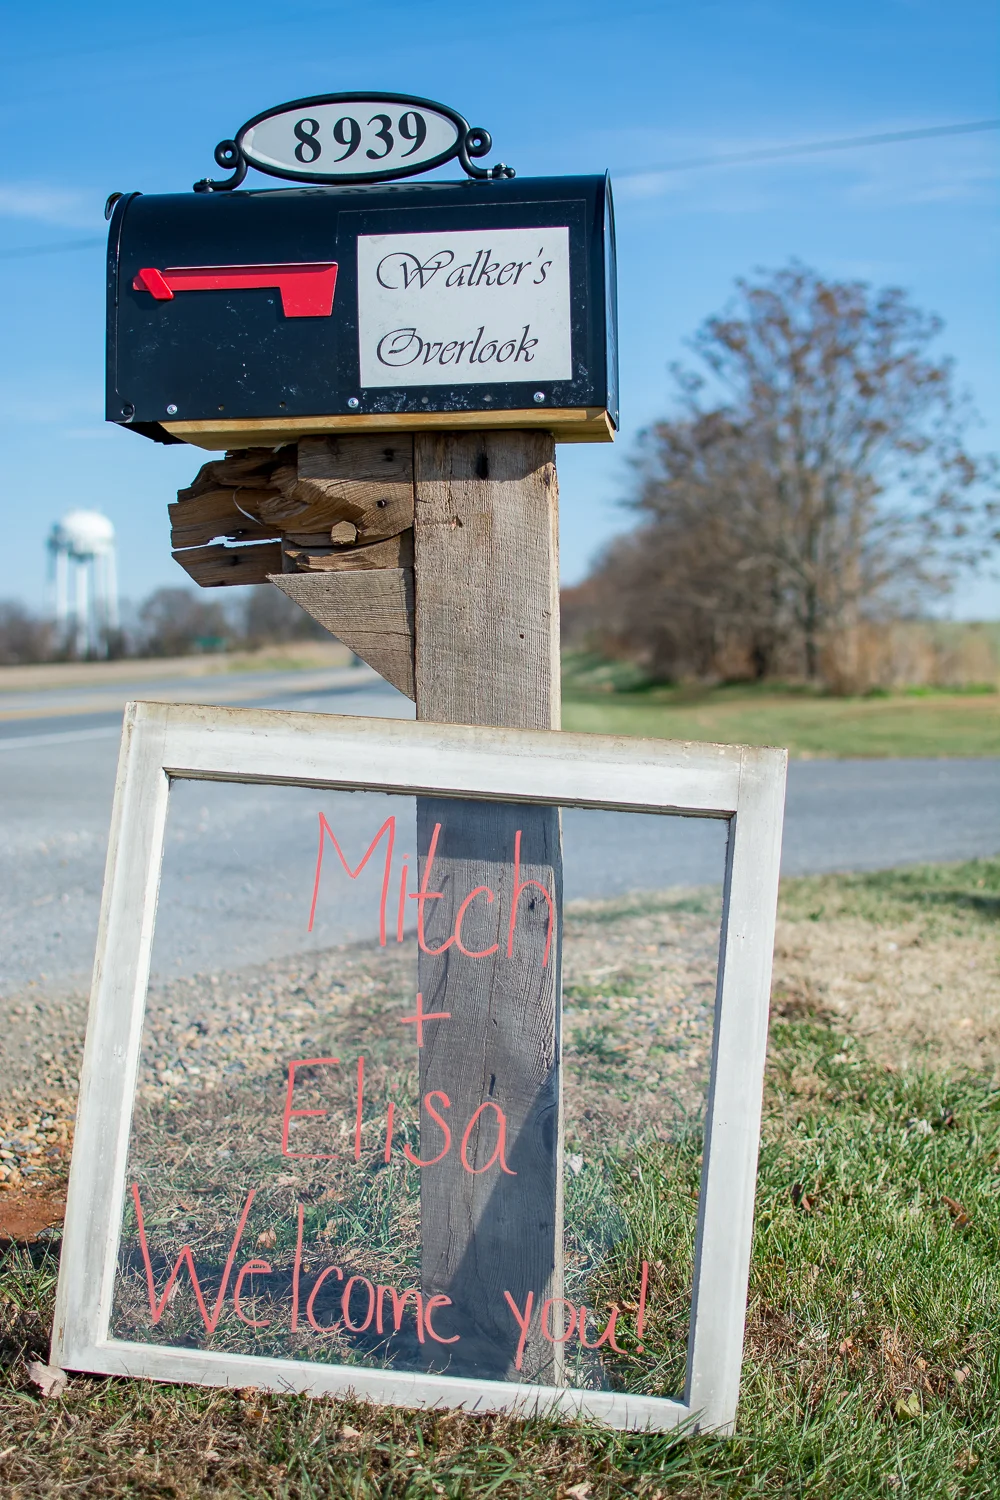 8939
Walker's
Overlook
Mitch
+
Elisa
Welcome you!